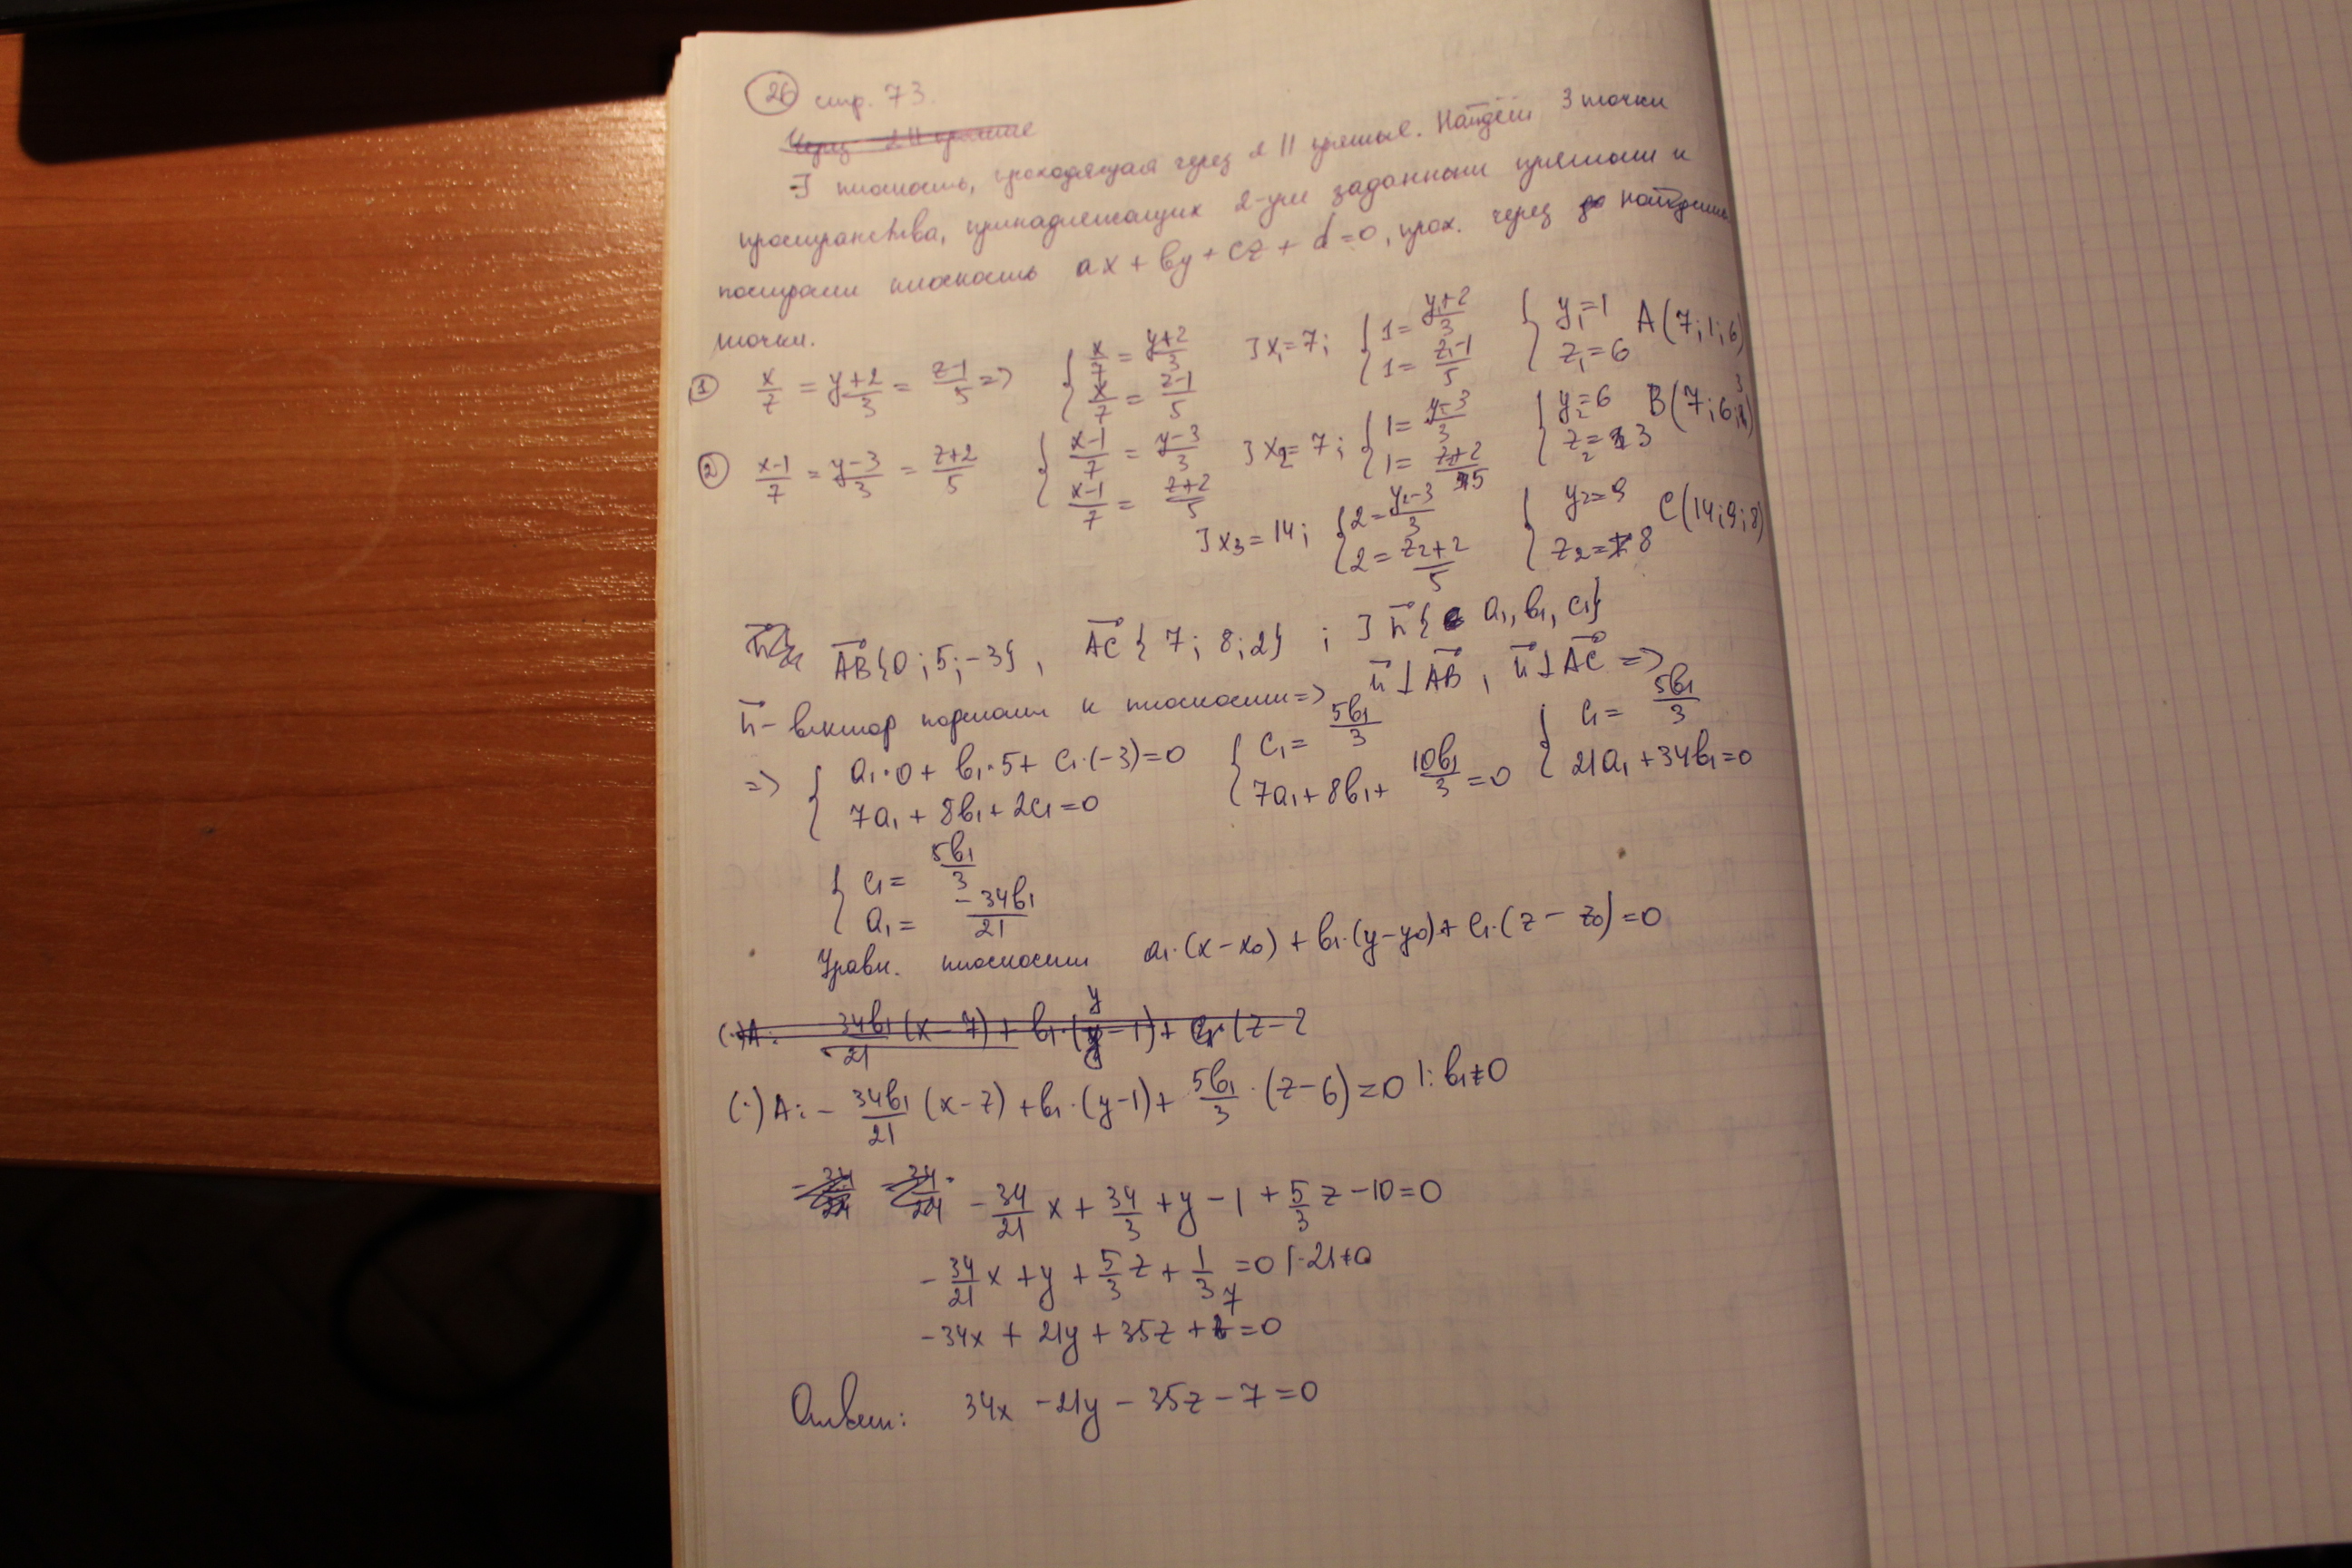 26 стр. 73.
Через 2 || прямые
∃ плоскость, проходящая через 2 || прямые. Найдём 3 точки
пространства, принадлежащих 2-ум заданным прямым и
построим плоскость ax + by + cz + d = 0, прох. через найденные
точки.
① x/7 = (y+2)/3 = (z-1)/5 => { x/7 = (y+2)/3 ; x/7 = (z-1)/5 ∃ x₁ = 7; { 1 = (y₁+2)/3 ; 1 = (z₁-1)/5 { y₁ = 1 ; z₁ = 6 A(7; 1; 6)
② (x-1)/7 = (y-3)/3 = (z+2)/5 { (x-1)/7 = (y-3)/3 ; (x-1)/7 = (z+2)/5 ∃ x₂ = 7; { 1 = (y-3)/3 ; 1 = (z+2)/5 { y₂ = 6 ; z₂ = 3 B(7; 6; 3)
∃ x₃ = 14; { 2 = (y₂-3)/3 ; 2 = (z₂+2)/5 { y₂ = 9 ; z₂ = 8 C(14; 9; 8)
AB{0; 5; -3}, AC{7; 8; 2}; ∃ n{a₁, b₁, c₁}
n - вектор нормали к плоскости => n ⊥ AB, n ⊥ AC =>
=> { a₁·0 + b₁·5 + c₁·(-3) = 0 ; 7a₁ + 8b₁ + 2c₁ = 0 { c₁ = 5b₁/3 ; 7a₁ + 8b₁ + 10b₁/3 = 0 { c₁ = 5b₁/3 ; 21a₁ + 34b₁ = 0
{ c₁ = 5b₁/3 ; a₁ = -34b₁/21
Уравн. плоскости a₁·(x - x₀) + b₁·(y - y₀) + c₁·(z - z₀) = 0
(·)A: 34b₁/21 (x - 7) + b₁·(y - 1) + c₁·(z -
(·)A: -34b₁/21 (x - 7) + b₁·(y - 1) + 5b₁/3 · (z - 6) = 0 |: b₁ ≠ 0
-34/21 x + 34/3 + y - 1 + 5/3 z - 10 = 0
-34/21 x + y + 5/3 z + 1/3 = 0 |·21 ≠ 0
-34x + 21y + 35z + 7 = 0
Ответ: 34x - 21y - 35z - 7 = 0